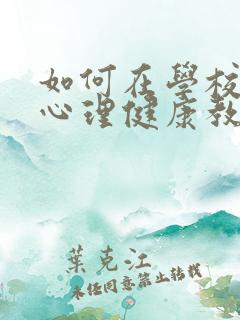 如何在學校
心理健康教
葉克江
未經同意禁止轉載